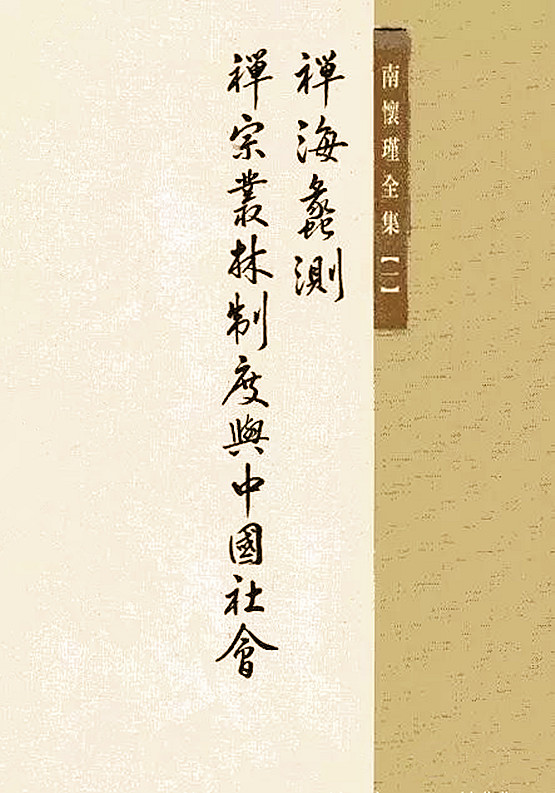 南懷瑾全集【一】
禪海蠡測
禪宗叢林制度與中國社會